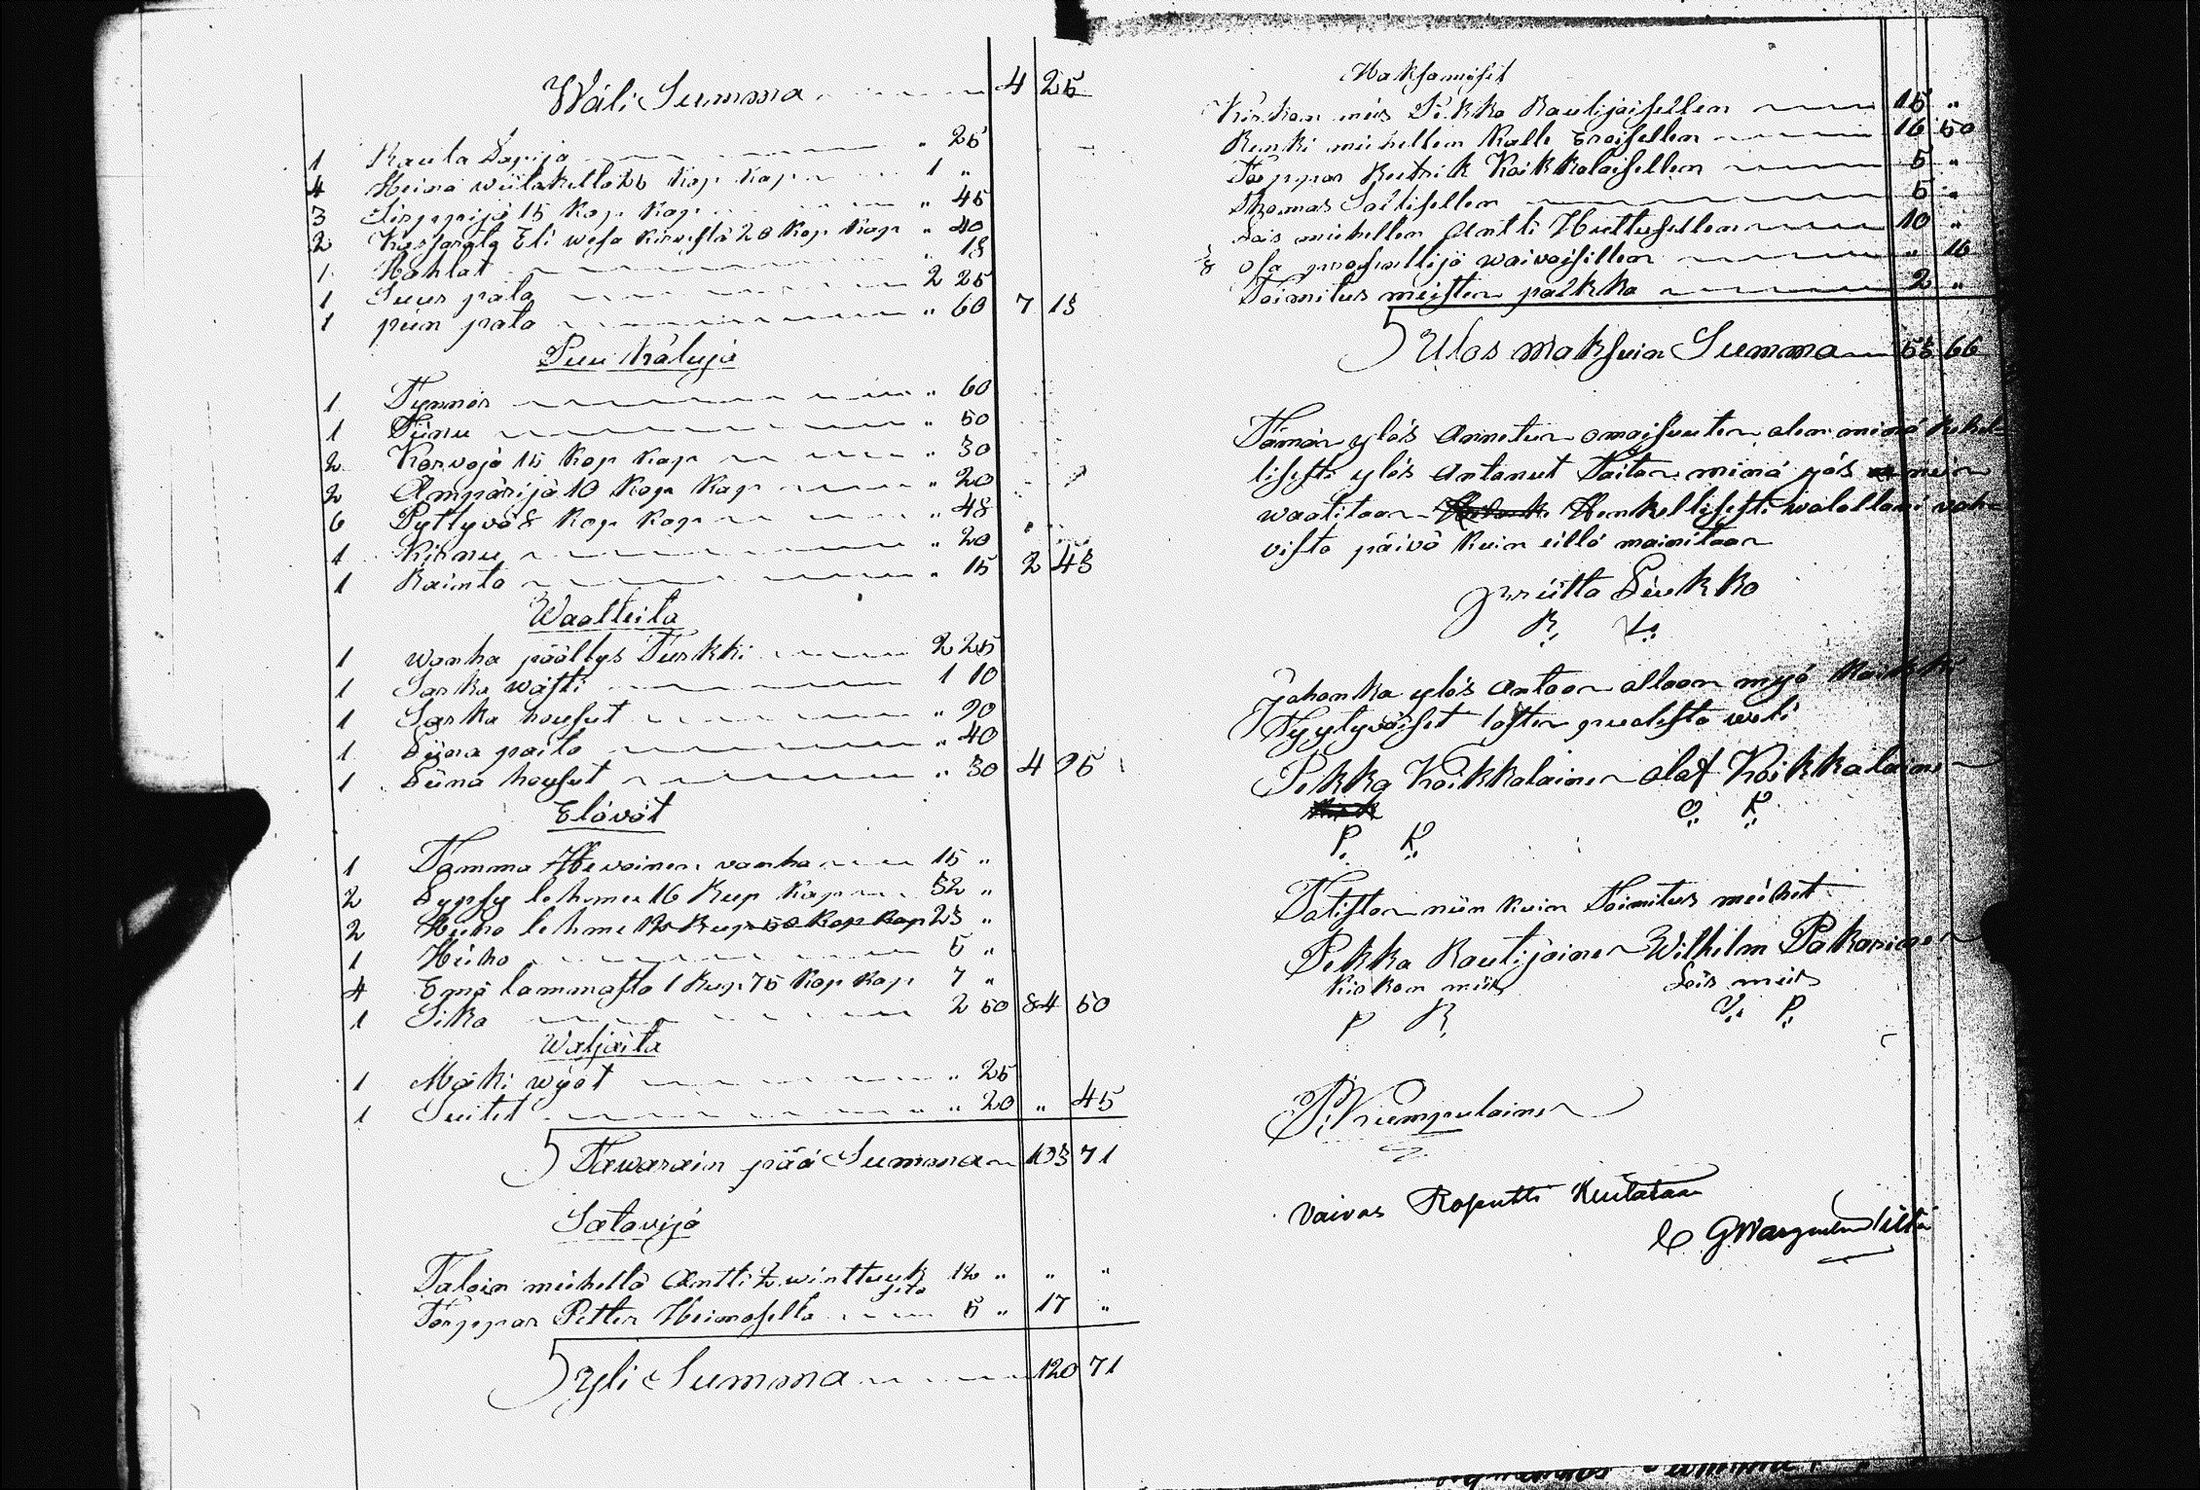 Wäli Summa 4 25
1 Rauta Lapija " 25
4 Heinä wiilakella 25 Kop Kap 1 "
3 Sirppijä 15 Kop Kap " 45
2 Kasarala Eli wesa kirvestä 20 Kop Kap " 40
1 Kahlat " 18
1 Suur pata 2 25
1 piin pata " 60 7 13
Puu Kaluja
1 Tynnör " 60
1 Tiinu " 50
2 Korvoja 15 Kop Kap " 30
2 Ämpärijä 10 Kop Kap " 20
6 Pyttyvä 8 Kop Kap " 48
1 Kirnu " 20
1 Rainta " 15 2 43
Waatteita
1 wanha päällys Turkki 2 25
1 Sarka wästi 1 10
1 Sarka housut " 90
1 Liina paita " 40
1 Liina housut " 30 4 95
Elävät
1 Tamma Hevoinen vanha 15 "
2 Lypsy lehmee 16 Rup Kap 32 "
2 Hieho lehme 12 Rup 50 Kop Kap 23 "
1 Hieho 5 "
4 Emä lammasta 1 Rup 75 Kop Kap 7 "
1 Sika 2 50 84 50
Waljaita
1 Mäki wyöt " 25
1 Suitet " 20 " 45
Tawarain pää Summa 103 71
Saatavija
Taloin miehellä Antti Winttuuk 12 " " "
sita
Torppar Petter Heimosella 5 " 17 "
yli Summa 120 71
Maksamisit
Kirkon mies Pekka Rautijaisellen 15 "
Renki miehellen Kalle Eroisellen 16 50
Torppar Retrik Koikkalaisellen 5 "
Thomas Saltisellen 5 "
Lois miehellen Antti Huttusellen 10 "
1/8 Osa prosenttijä waivaisillen " 16
Toimitus miesten palkka 2 "
Ulos Maksuin Summa 53 66
Tämän ylös Annetun omaisuuten olen minä Rehel
lisesti ylös Antanut Taitan minä yös niin
waatitaan Henkellisesti walallani vah
vista päivä kuin eillä mainitaan
priitta Liukko
R. L.
Johonka ylös Antoon olloon myö Kaikki
Tyytyväiset lasten puolesta weli
Pekka Koikkalainen Olof Koikkalainen
P. K. O. K.
Totistan niin kuin Toimitus miehet
Pekka Rautijainen Wilhelm Pakarinen
Kirkon mies Lois mies
P R W. P.
P. Kumpulainen
Vaivas Roputti Kuitataan